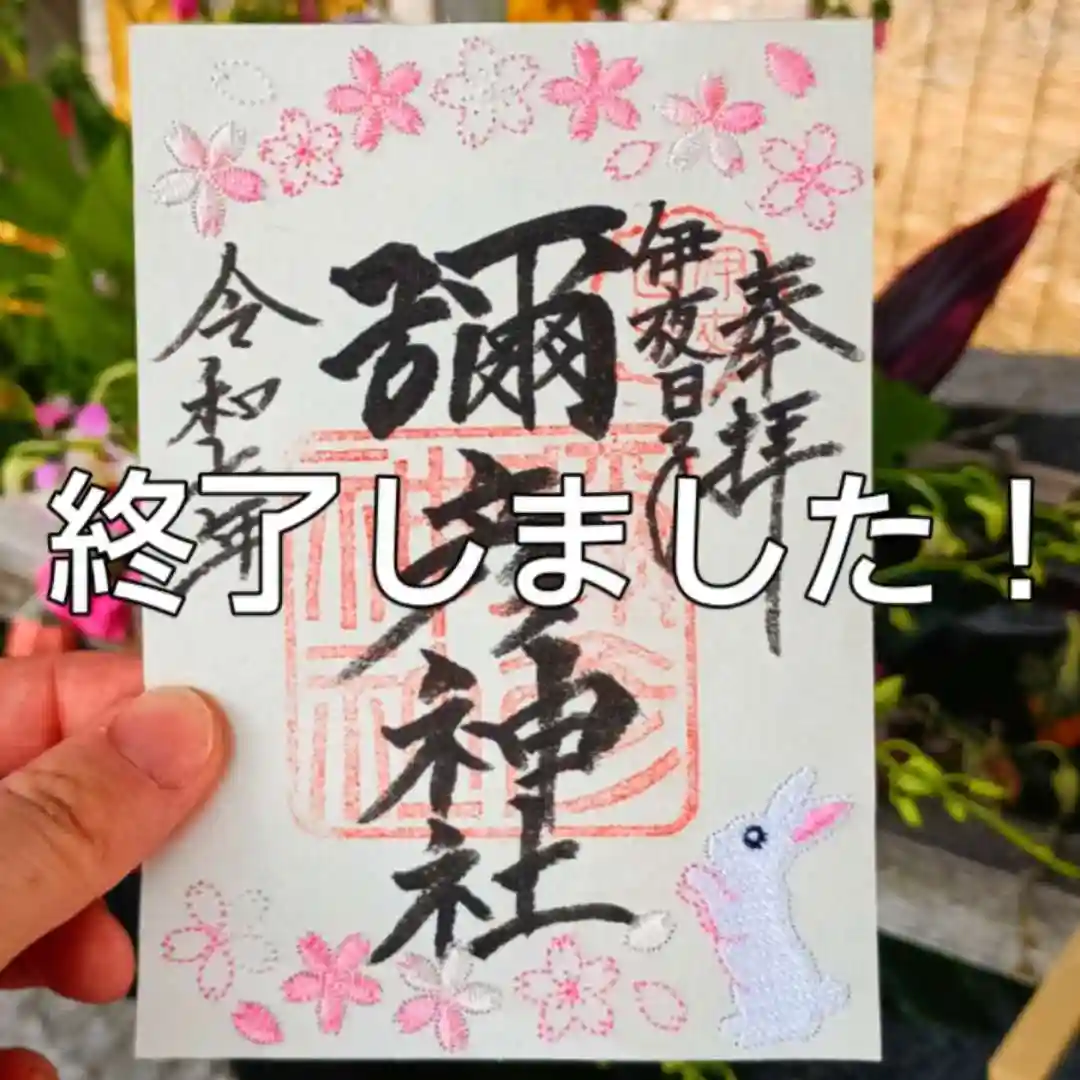 奉拝
伊夜日子
彌彦神社
令和七年
終了しました！